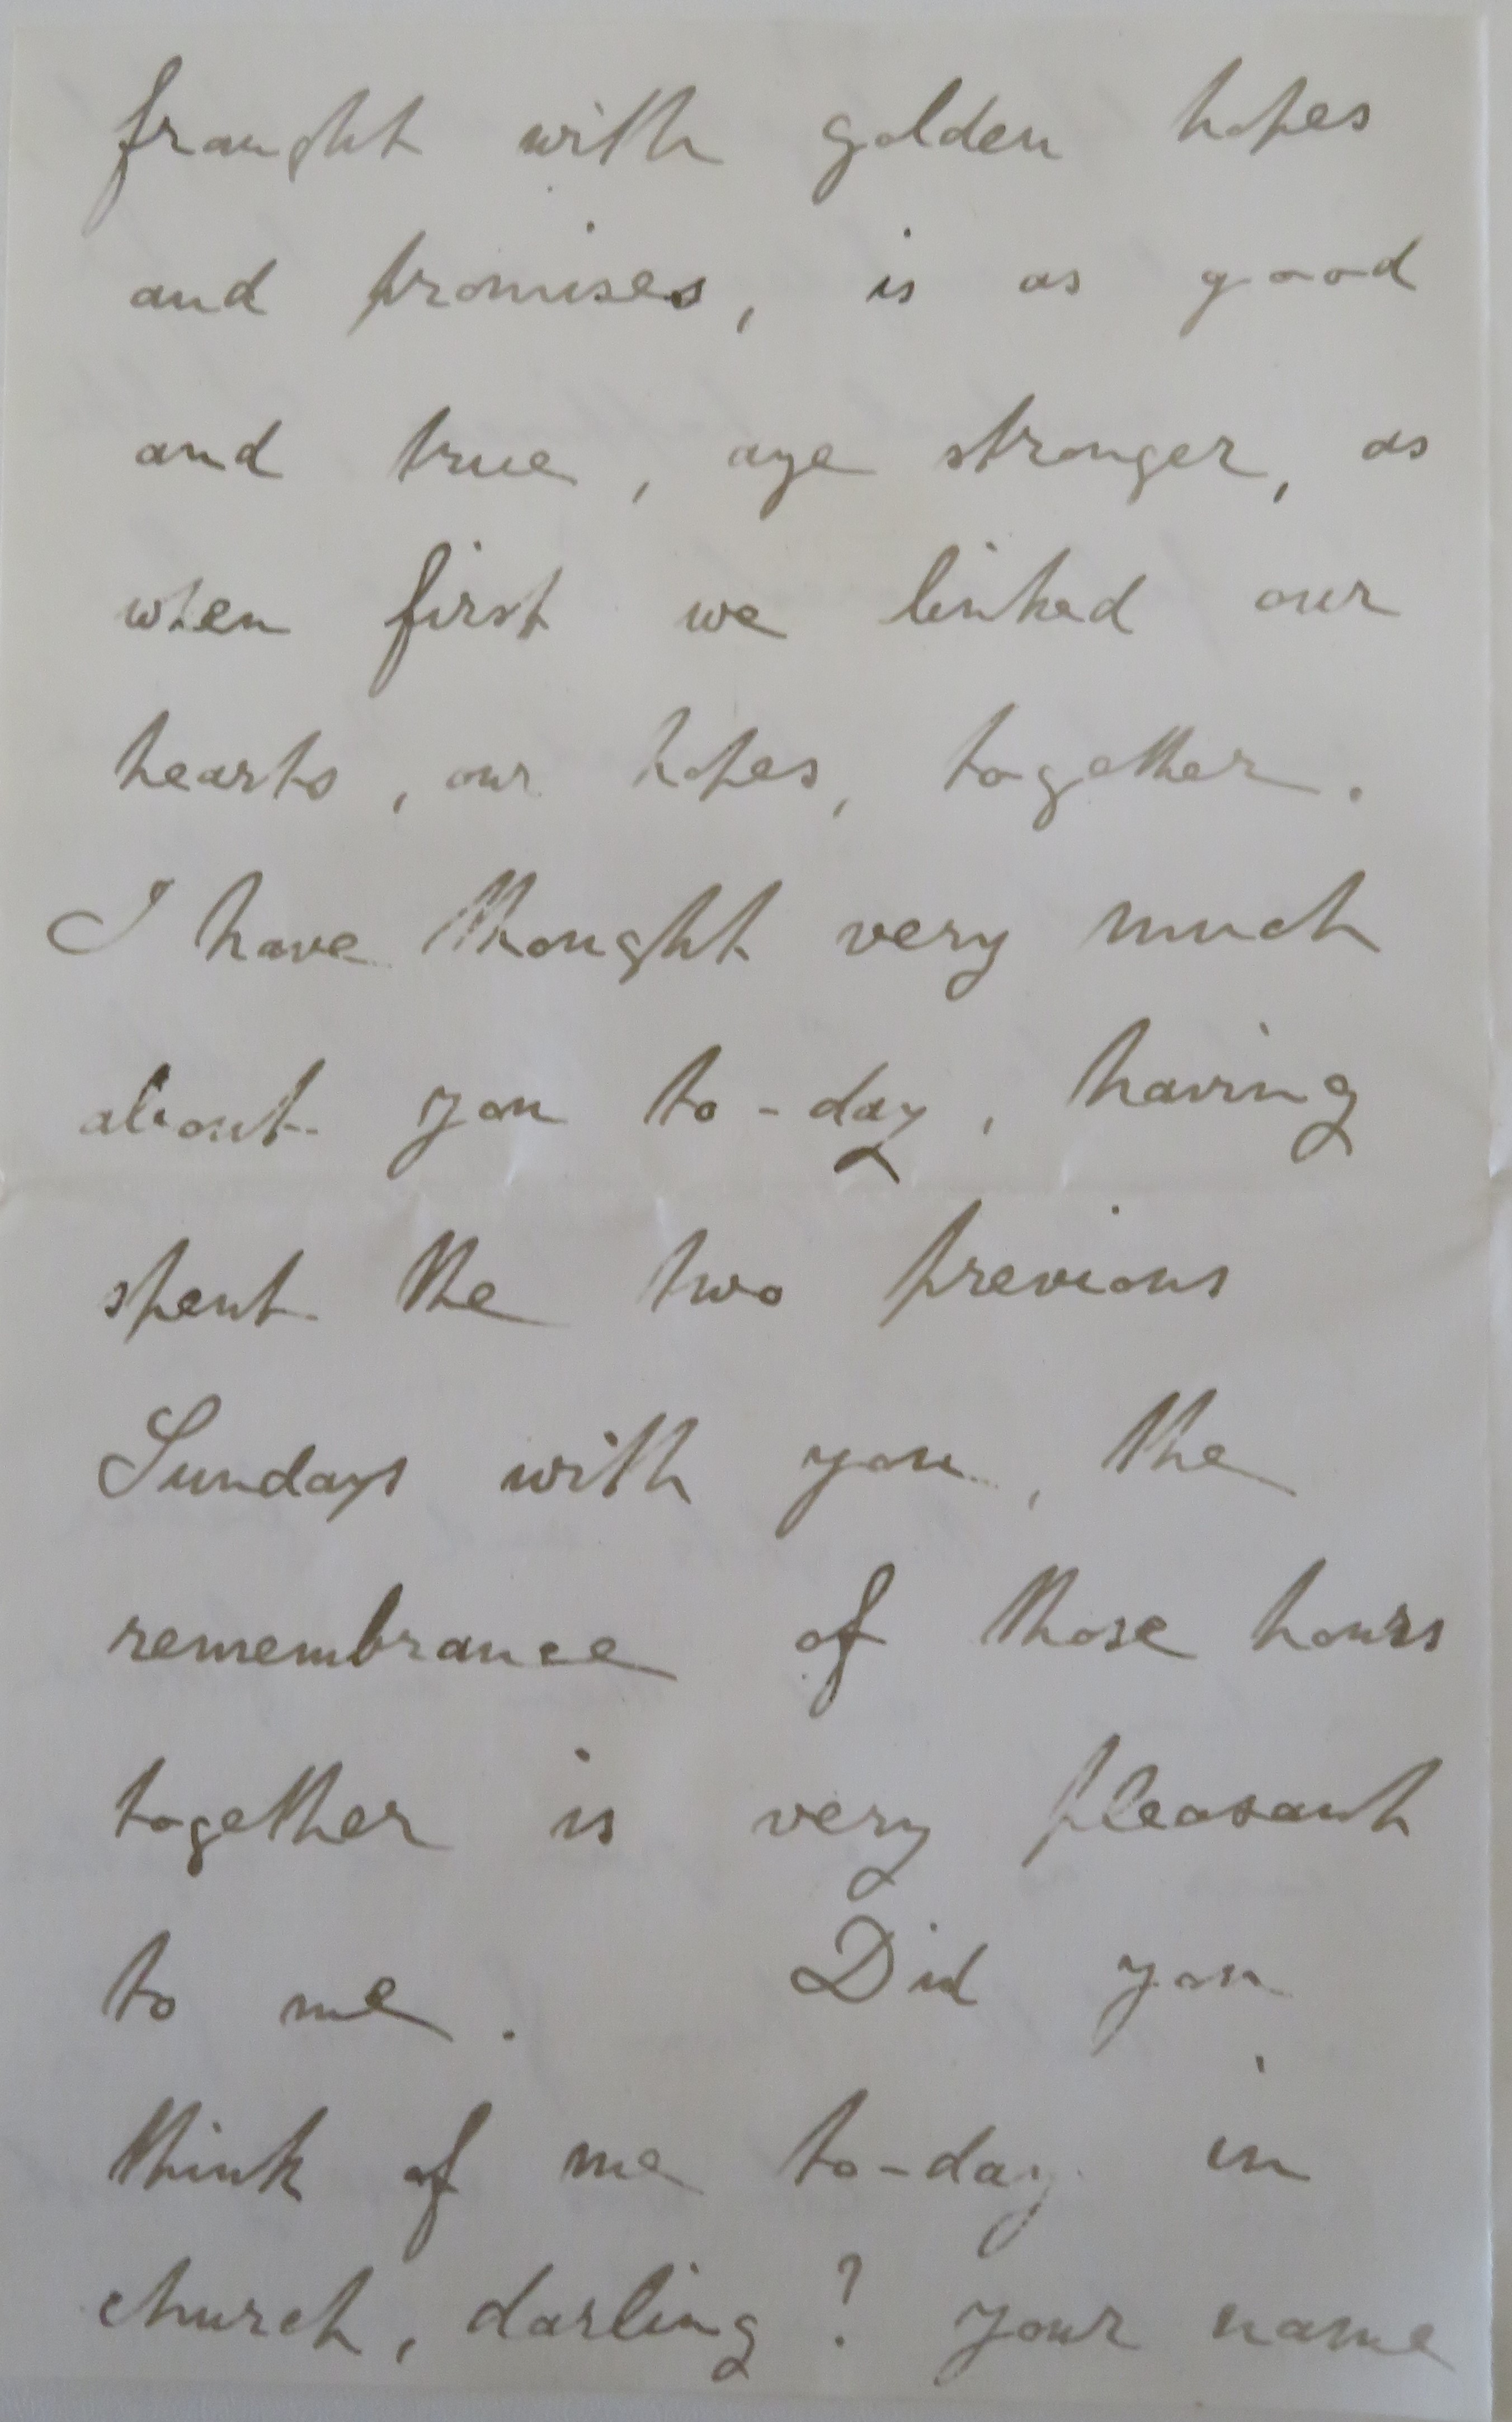 fraught with golden hopes
and promises, is as good
and true, aye stronger, as
when first we linked our
hearts, our hopes, together.
I have thought very much
about you to-day, having
spent the two previous
Sundays with you, the
remembrance of those hours
together is very pleasant
to me. Did you
think of me to-day in
church, darling? Your name